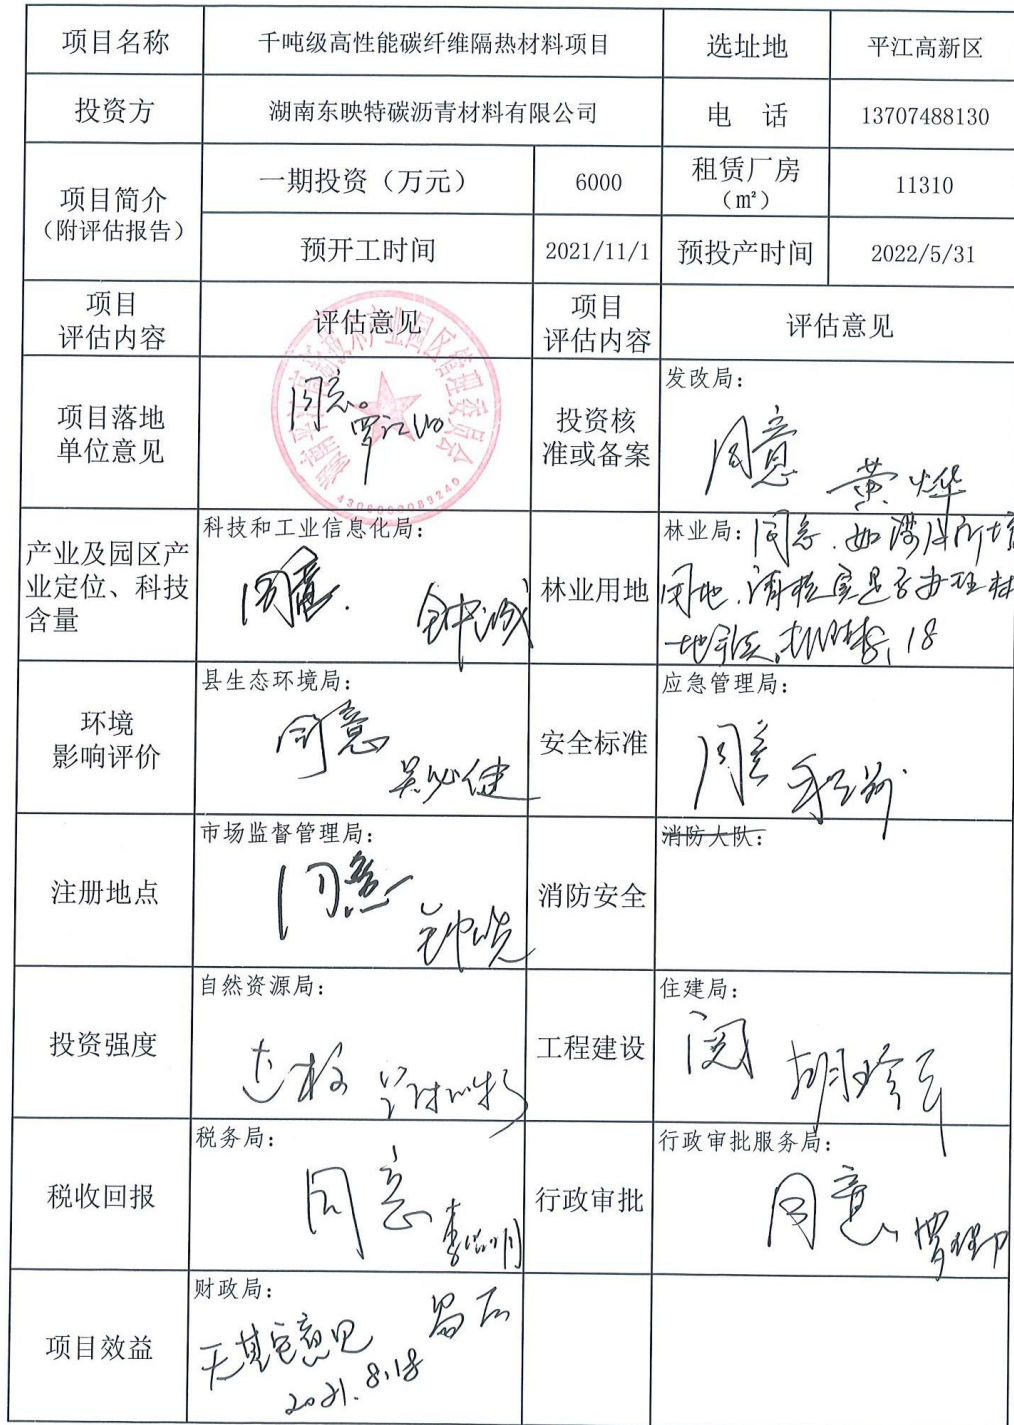 项目名称 千吨级高性能碳纤维隔热材料项目 选址地 平江高新区
投资方 湖南东映特碳沥青材料有限公司 电 话 13707488130
项目简介
（附评估报告）
一期投资（万元） 6000 租赁厂房
（㎡） 11310
预开工时间 2021/11/1 预投产时间 2022/5/31
项目
评估内容
评估意见
项目
评估内容
评估意见
项目落地
单位意见
同意。
4306000089240
投资核
准或备案
发改局：
同意 黄烨
产业及园区产
业定位、科技
含量
科技和工业信息化局：
同意. 钟诚
林业用地
林业局：同意.如涉及新增
用地.请核实是否办理林
地手续. 18
环境
影响评价
县生态环境局：
同意
安全标准
应急管理局：
同意
注册地点
市场监督管理局：
同意
消防安全
消防大队：
投资强度
自然资源局：
工程建设
住建局：
阅
税收回报
税务局：
同意
行政审批
行政审批服务局：
同意
项目效益
财政局：
无其它意见
2021.8.18